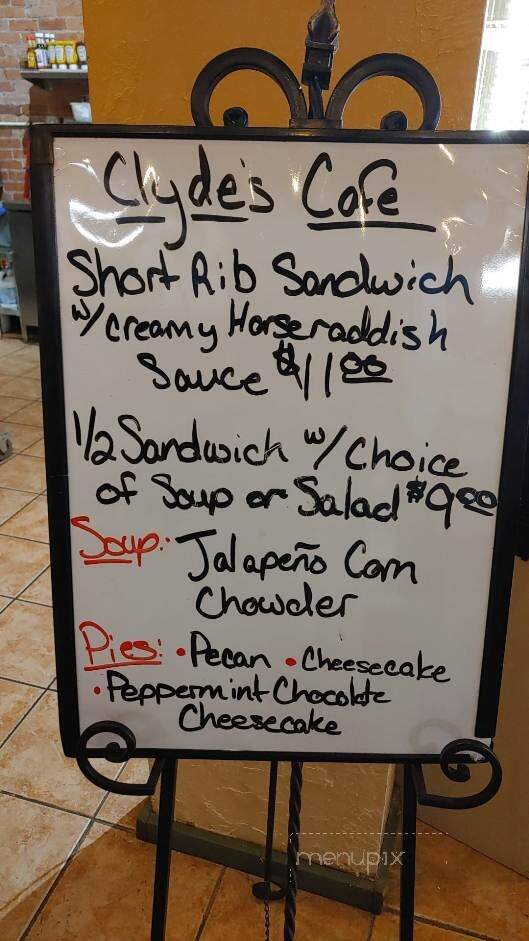 Clyde's Cafe
Short Rib Sandwich
w/ creamy Horseraddish
Sauce $11.00
1/2 Sandwich w/ Choice
of Soup or Salad $9.00
Soup: Jalapeño Corn
Chowder
Pies: • Pecan • Cheesecake
• Peppermint Chocolate
Cheesecake
menupix